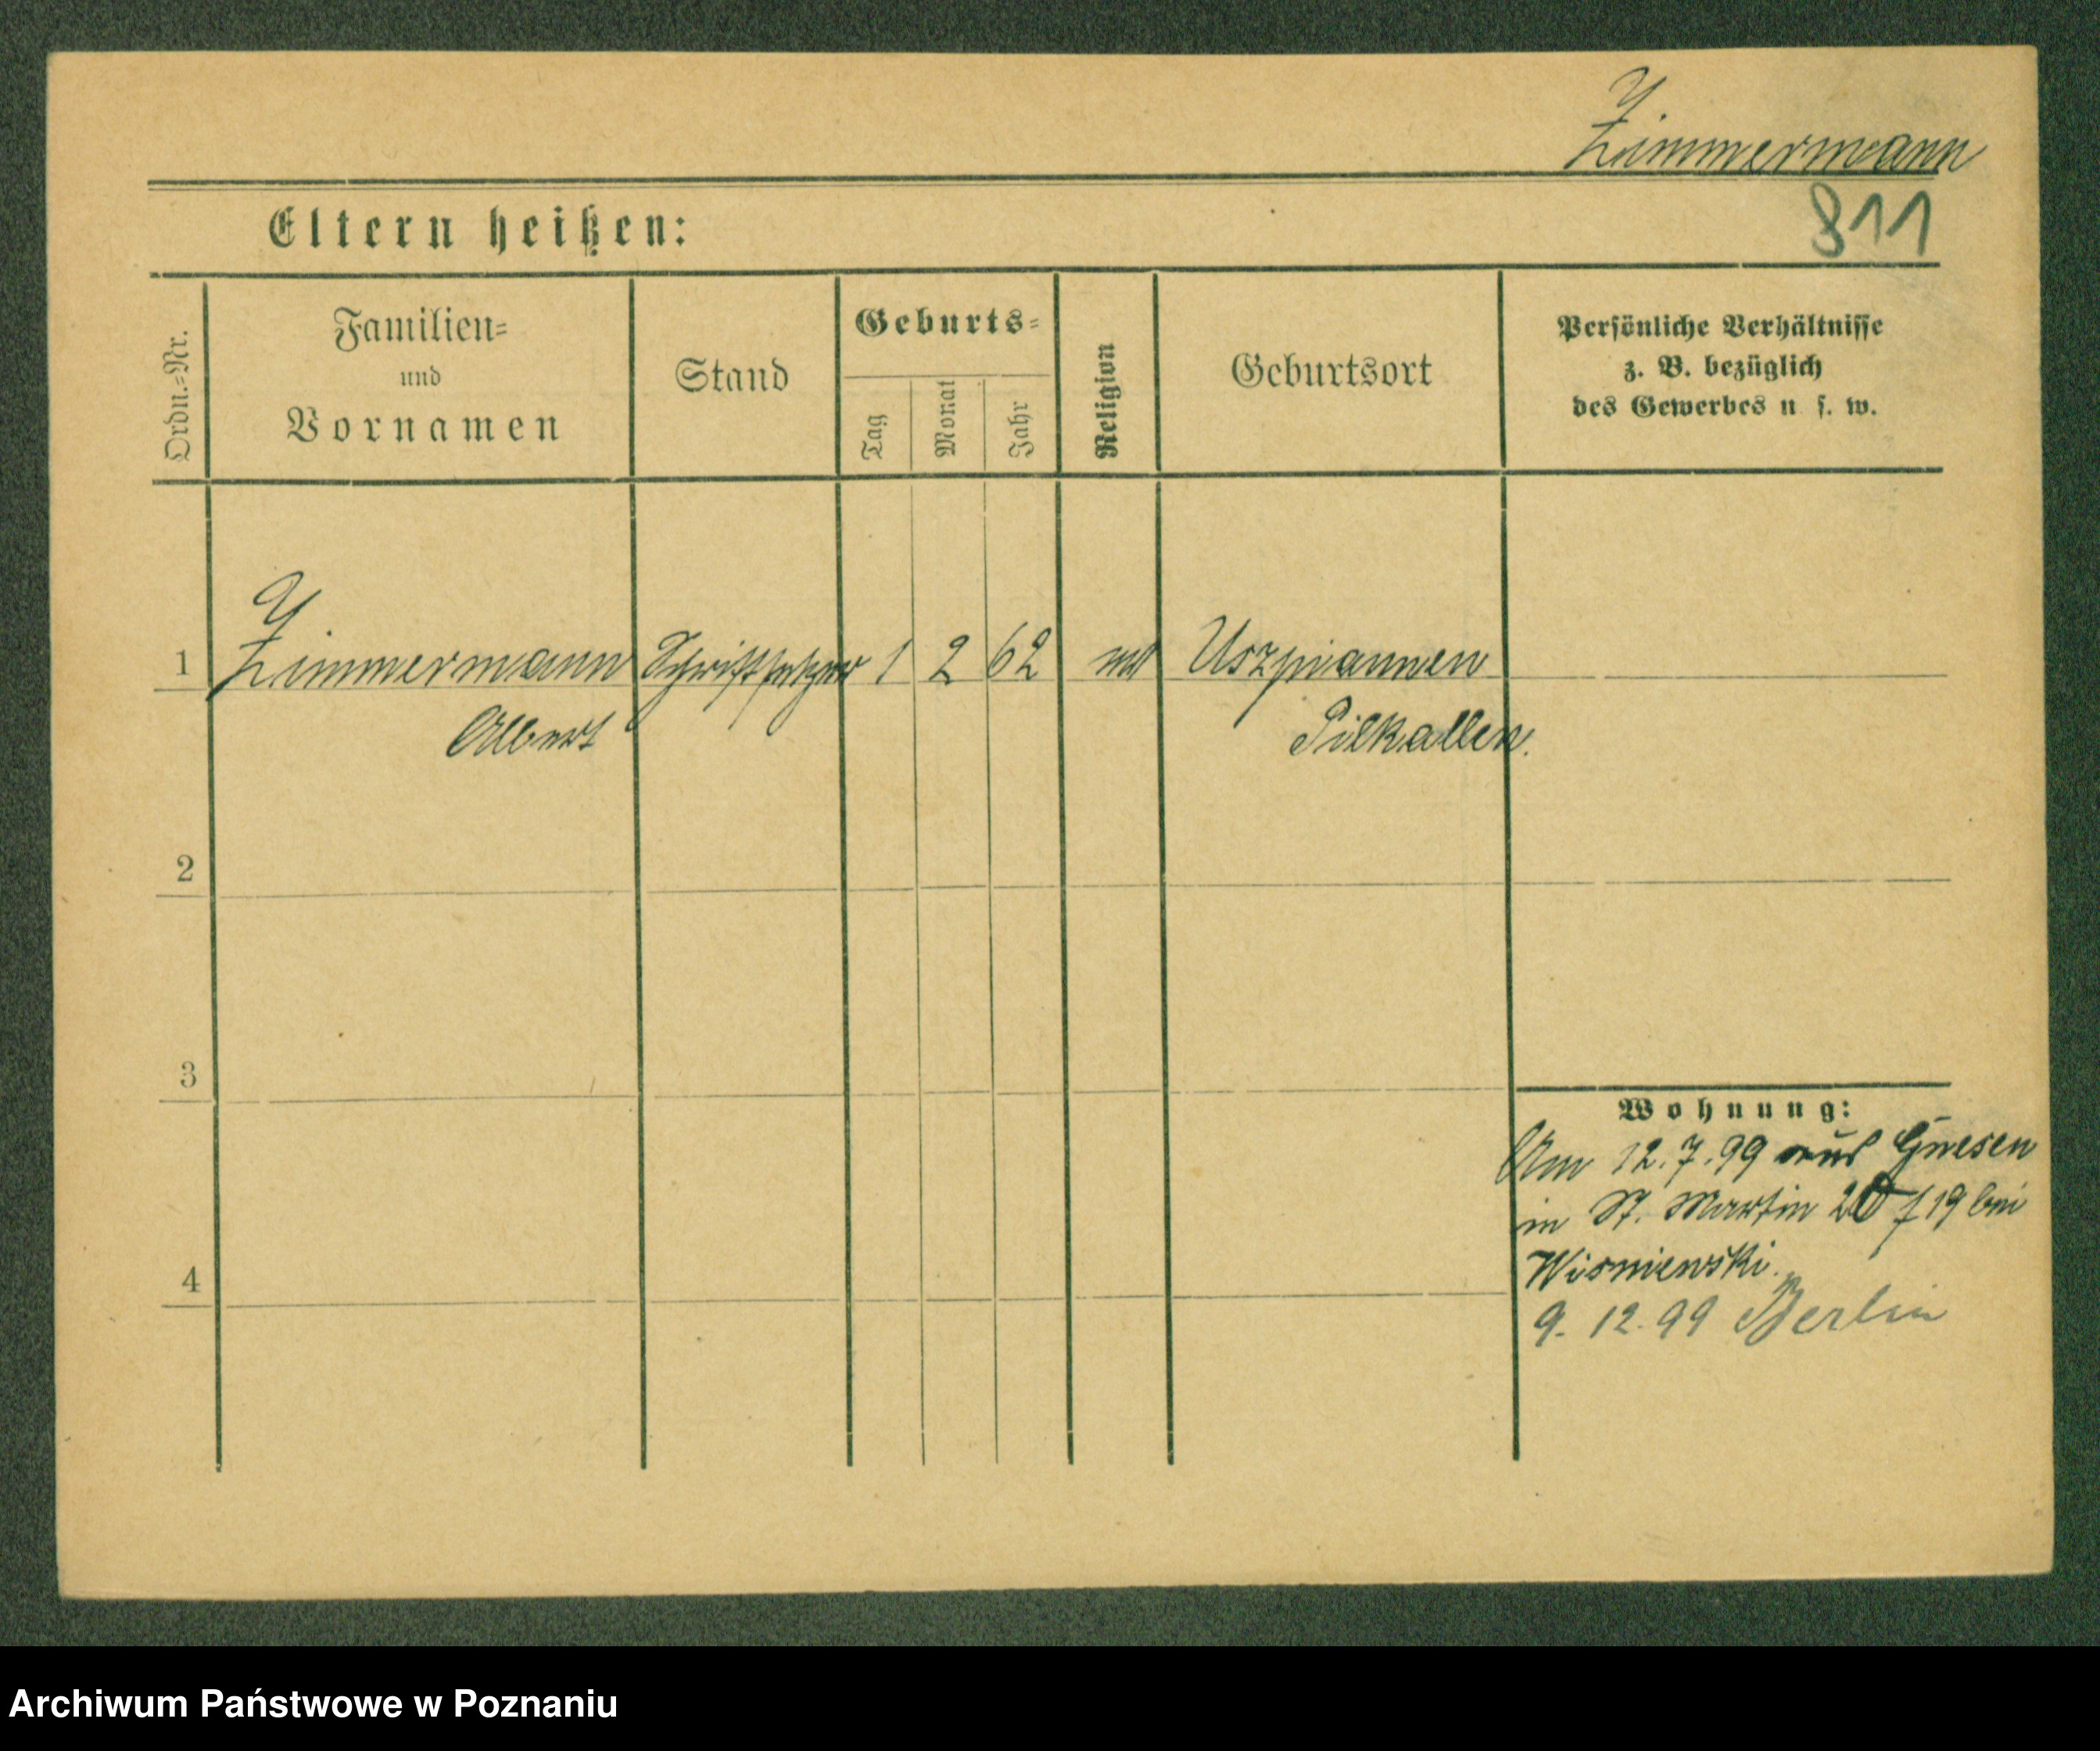 Zimmermann
811
Eltern heißen:
Ordn.=Nr.
Familien=
und
Vornamen
Stand
Geburts=
Tag
Monat
Jahr
Religion
Geburtsort
Persönliche Verhältnisse
z. B. bezüglich
des Gewerbes u. s. w.
1 Zimmermann Schriftsetzer 1 2 62 Uszpiaunen
Albert Pilkallen.
2
3
4
Wohnung:
Am 12.7.99 aus Gnesen
in St. Martin 20 bei
Wisniewski.
9. 12. 99 Berlin
Archiwum Państwowe w Poznaniu